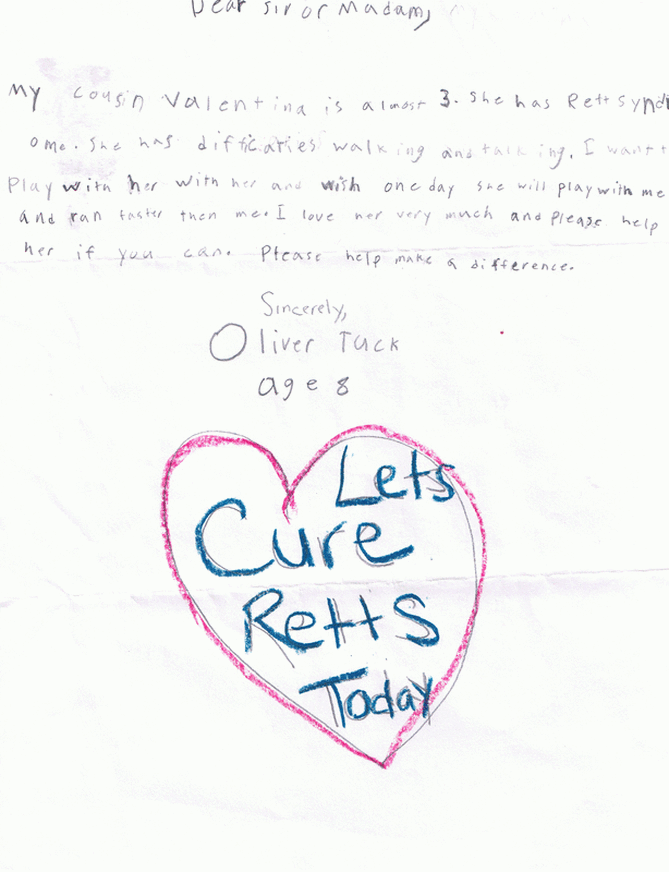 Dear Sir or Madam,
My cousin Valentina is almost 3. She has Rett syndr
ome. She has difficaties walking and talking. I want t
Play with her with her and wish one day she will play with me
and ran faster then me. I love her very much and Please help
her if you can. Please help make a difference.
Sincerely,
Oliver Tuck
age 8
Lets
Cure
Retts
Today